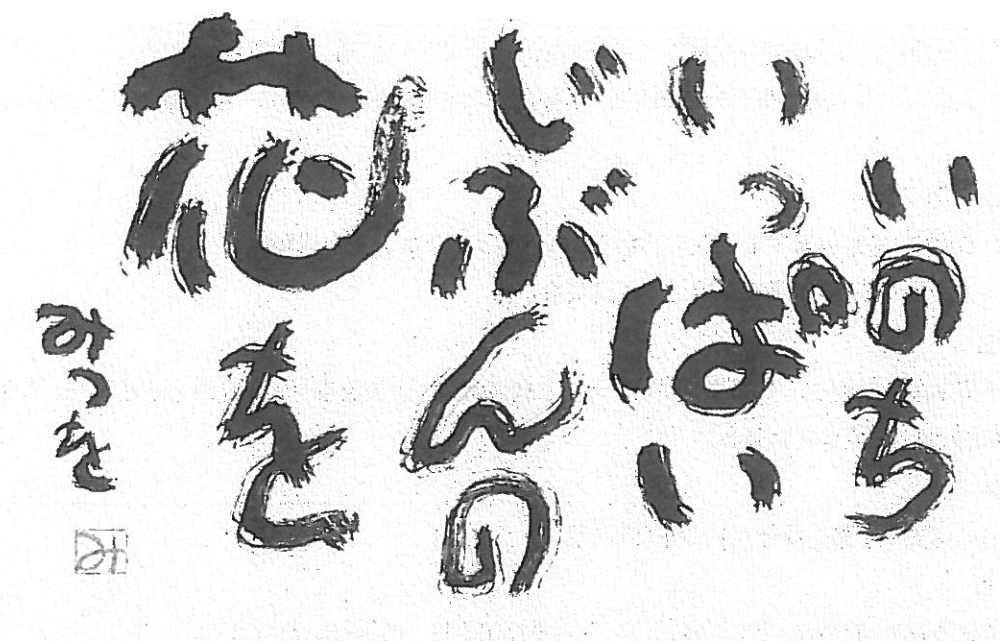 いのち
いっぱい
じぶんの
花を
みつを
み